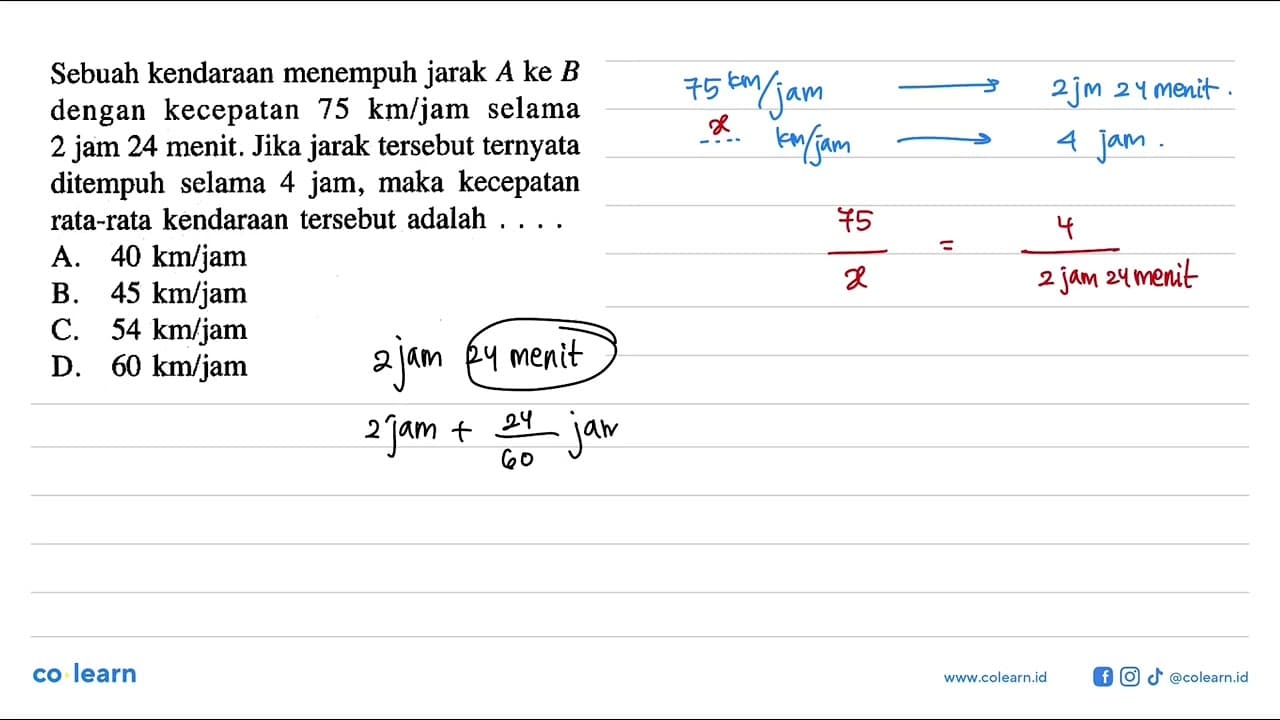 Sebuah kendaraan menempuh jarak A ke B
dengan kecepatan 75 km/jam selama
2 jam 24 menit. Jika jarak tersebut ternyata
ditempuh selama 4 jam, maka kecepatan
rata-rata kendaraan tersebut adalah . . . .
A. 40 km/jam
B. 45 km/jam
C. 54 km/jam
D. 60 km/jam
75 km/jam → 2 jm 24 menit.
x .... km/jam → 4 jam.
75/x = 4/2 jam 24 menit
2 jam 24 menit
2 jam + 24/60 jam
co learn
www.colearn.id
@colearn.id